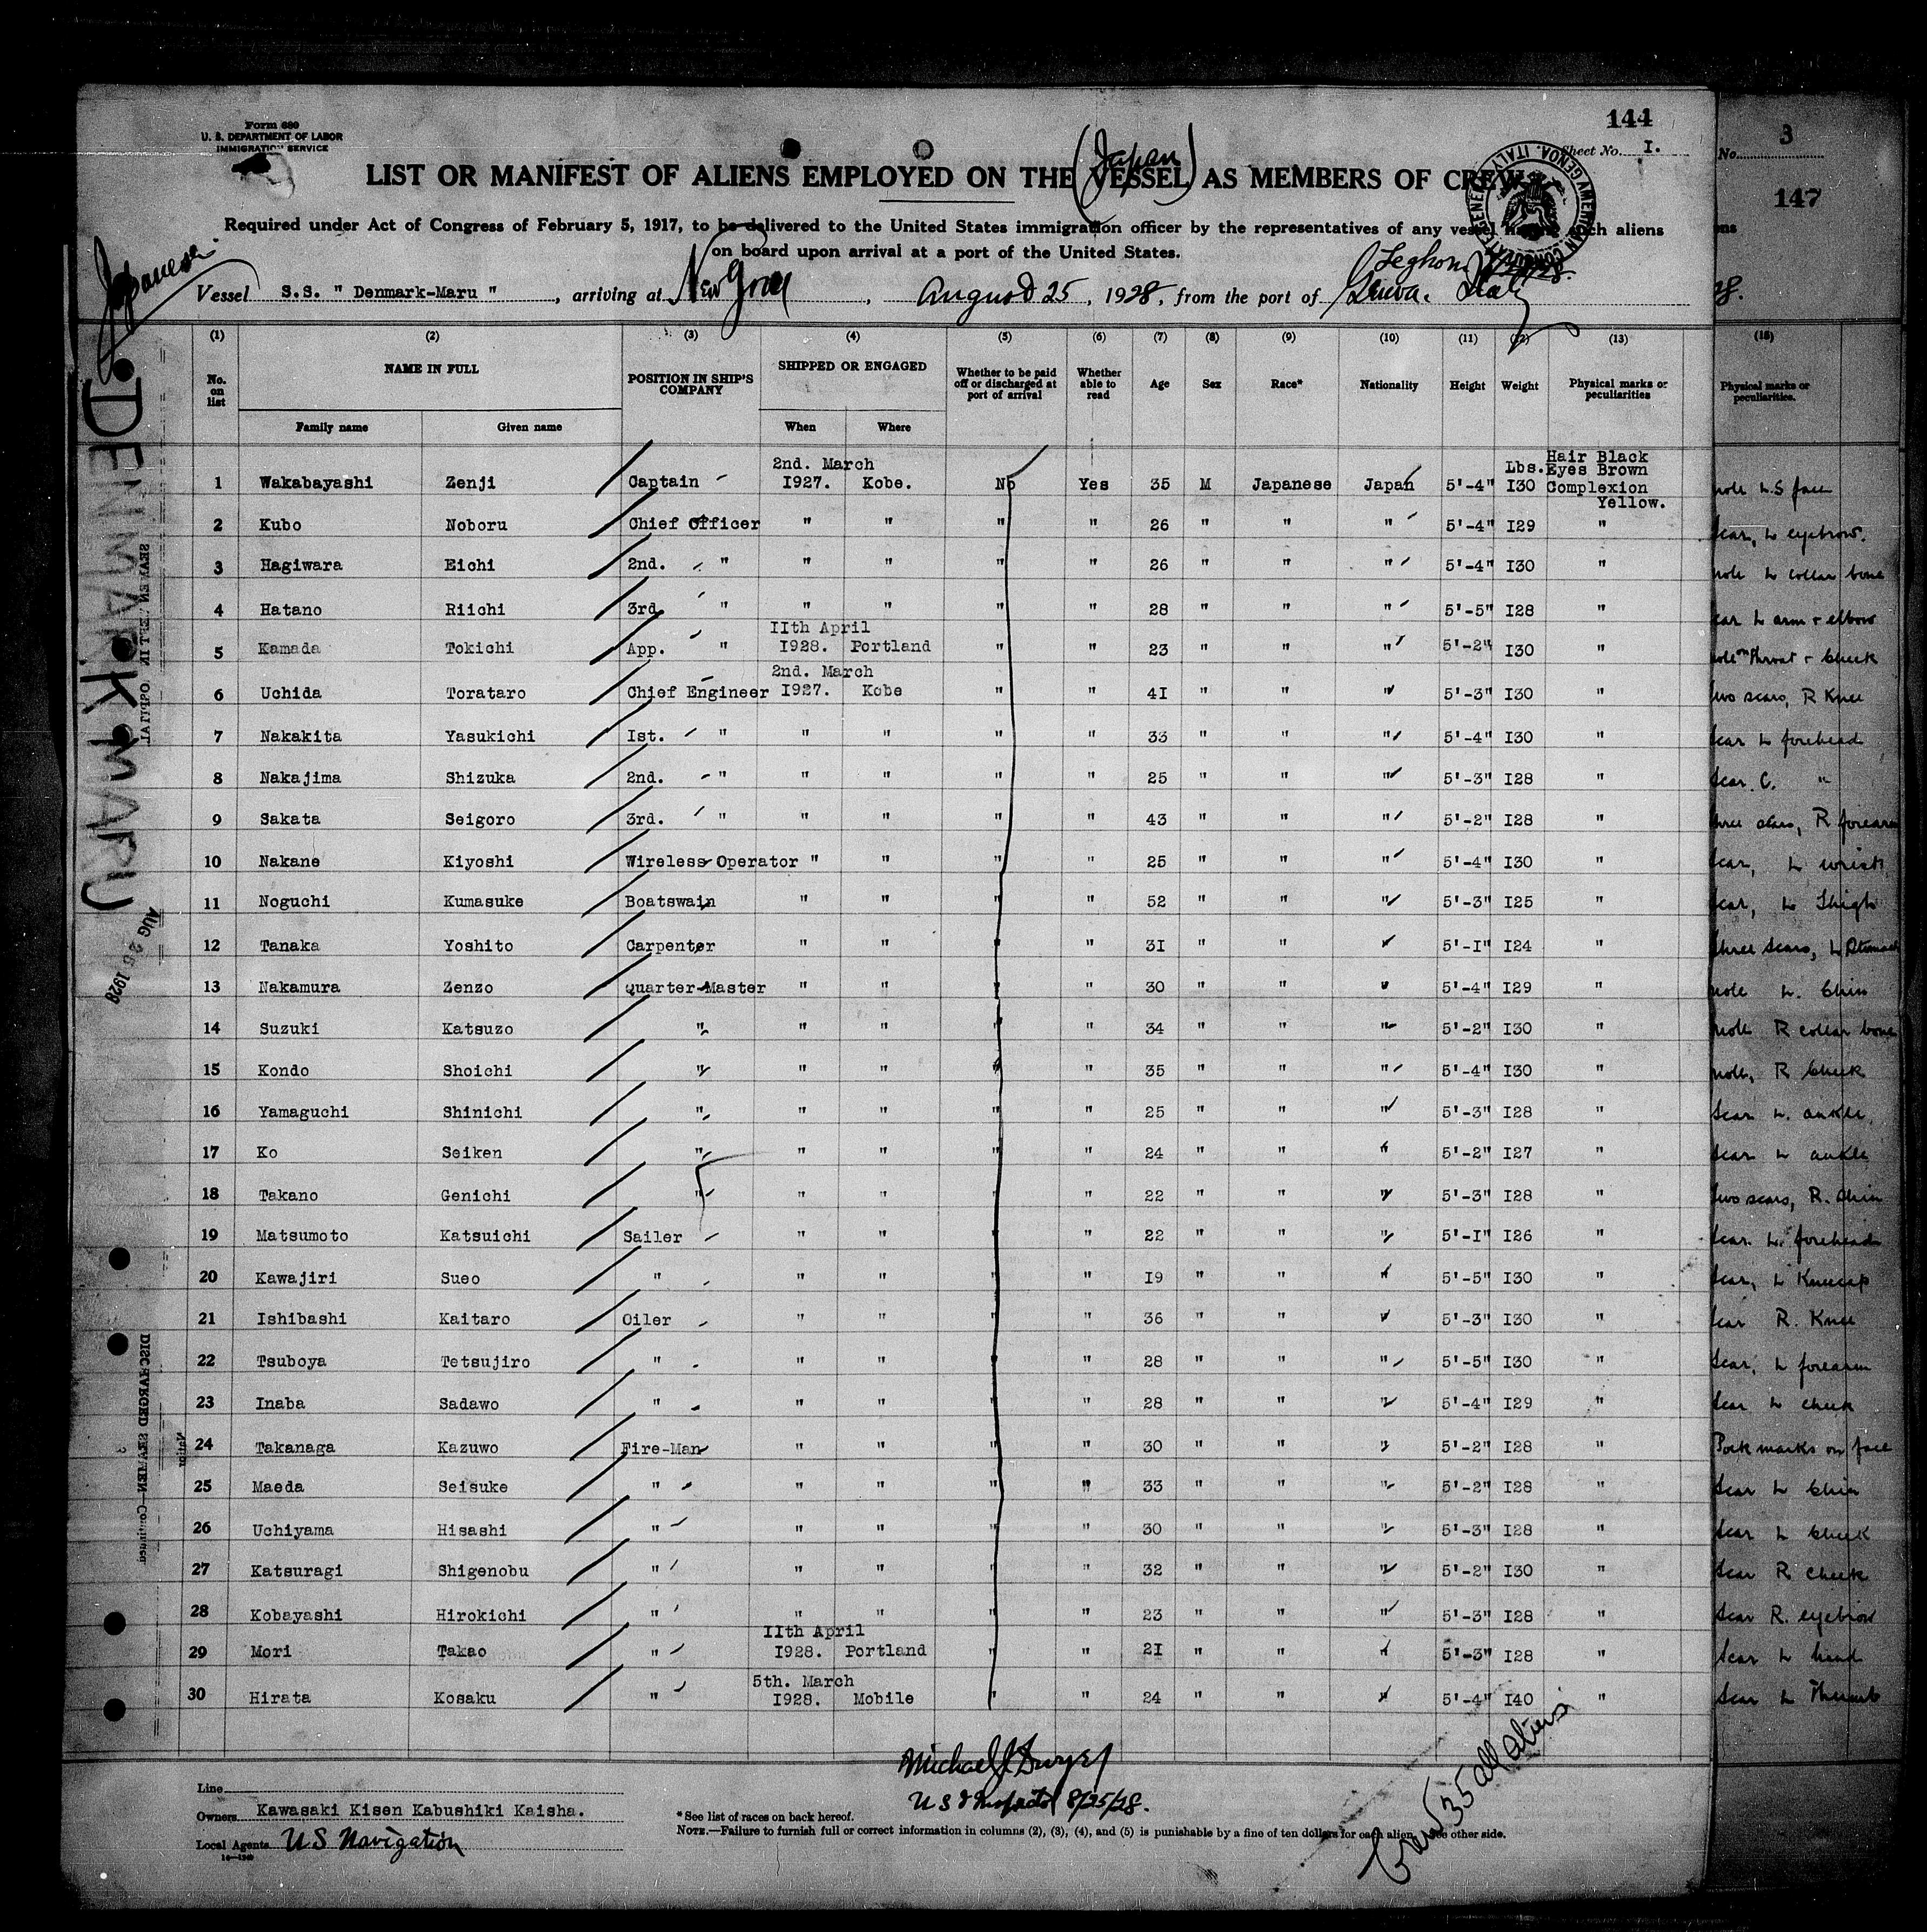 144
Form 680
U. S. DEPARTMENT OF LABOR
IMMIGRATION SERVICE
Sheet No. I.
(Japan)
LIST OR MANIFEST OF ALIENS EMPLOYED ON THE VESSEL AS MEMBERS OF CREW
Required under Act of Congress of February 5, 1917, to be delivered to the United States immigration officer by the representatives of any vessel having such aliens
on board upon arrival at a port of the United States.
Japanese
Leghorn
Vessel S.S. " Denmark-Maru " , arriving at New York , August 25 , 1928, from the port of Genoa. Italy
(1) (2) (3) (4) (5) (6) (7) (8) (9) (10) (11) (12) (13)
No. on list NAME IN FULL POSITION IN SHIP'S COMPANY SHIPPED OR ENGAGED Whether to be paid off or discharged at port of arrival Whether able to read Age Sex Race* Nationality Height Weight Physical marks or peculiarities
Family name Given name When Where
2nd. March Lbs. Hair Black Eyes Brown
1 Wakabayashi Zenji Captain I927. Kobe. No Yes 35 M Japanese Japan 5'-4" I30 Complexion Yellow.
2 Kubo Noboru Chief Officer " " " " 26 " " " 5'-4" I29 "
3 Hagiwara Eichi 2nd. " " " " " 26 " " " 5'-4" I30 "
4 Hatano Riichi 3rd. " " " " " 28 " " " 5'-5" I28 "
IIth April
5 Kamada Tokichi App. " I928. Portland " " 23 " " " 5'-2" I30 "
2nd. March
6 Uchida Torataro Chief Engineer I927. Kobe " " 4I " " " 5'-3" I30 "
7 Nakakita Yasukichi Ist. " " " " " 33 " " " 5'-4" I30 "
8 Nakajima Shizuka 2nd. " " " " " 25 " " " 5'-3" I28 "
9 Sakata Seigoro 3rd. " " " " " 43 " " " 5'-2" I28 "
10 Nakane Kiyoshi Wireless Operator " " " " 25 " " " 5'-4" I30 "
11 Noguchi Kumasuke Boatswain " " " " 52 " " " 5'-3" I25 "
12 Tanaka Yoshito Carpenter " " " " 3I " " " 5'-I" I24 "
13 Nakamura Zenzo Quarter-Master " " " " 30 " " " 5'-4" I29 "
14 Suzuki Katsuzo " " " " " 34 " " " 5'-2" I30 "
15 Kondo Shoichi " " " " " 35 " " " 5'-4" I30 "
16 Yamaguchi Shinichi " " " " " 25 " " " 5'-3" I28 "
17 Ko Seiken " " " " " 24 " " " 5'-2" I27 "
18 Takano Genichi " " " " " 22 " " " 5'-3" I28 "
19 Matsumoto Katsuichi Sailer " " " " 22 " " " 5'-I" I26 "
20 Kawajiri Sueo " " " " " I9 " " " 5'-5" I30 "
21 Ishibashi Kaitaro Oiler " " " " 36 " " " 5'-3" I30 "
22 Tsuboya Tetsujiro " " " " " 28 " " " 5'-5" I30 "
23 Inaba Sadawo " " " " " 28 " " " 5'-4" I29 "
24 Takanaga Kazuwo Fire-Man " " " " 30 " " " 5'-2" I28 "
25 Maeda Seisuke " " " " " 33 " " " 5'-2" I28 "
26 Uchiyama Hisashi " " " " " 30 " " " 5'-3" I28 "
27 Katsuragi Shigenobu " " " " " 32 " " " 5'-2" I30 "
28 Kobayashi Hirokichi " " " " " 23 " " " 5'-3" I28 "
IIth April
29 Mori Takao " I928. Portland " " 2I " " " 5'-3" I28 "
5th. March
30 Hirata Kosaku " I928. Mobile " " 24 " " " 5'-4" I40 "
Michael J. Dwyer
U S I Inspector 8/25/28.
Crew 35 all aliens
Line
Owners Kawasaki Kisen Kabushiki Kaisha.
Local Agents U S Navigation
* See list of races on back hereof.
NOTE.—Failure to furnish full or correct information in columns (2), (3), (4), and (5) is punishable by a fine of ten dollars for each alien. See other side.
DENMARK MARU
AUG 26 1928
DISCHARGED SEAMEN—Continued
No. 3
147
28.
(13)
Physical marks or peculiarities.
mole L.S face
scar, L eyebrow.
mole L collar bone
scar L arm & elbow
mole on throat & cheek
two scars, R Knee
scar L forehead
scar C. "
three scars, R forearm
scar, L wrist
scar, L thigh
three scars, L stomach
mole L. chin
mole R collar bone
mole, R cheek
scar L. ankle
scar L ankle
two scars, R. shin
scar L. forehead
scar, L Kneecap
scar R. Knee
scar, L forearm
scar L cheek
Pock marks on face
scar L chin
scar L cheek
scar R cheek
scar R. eyebrow
scar L hand
scar L Thumb